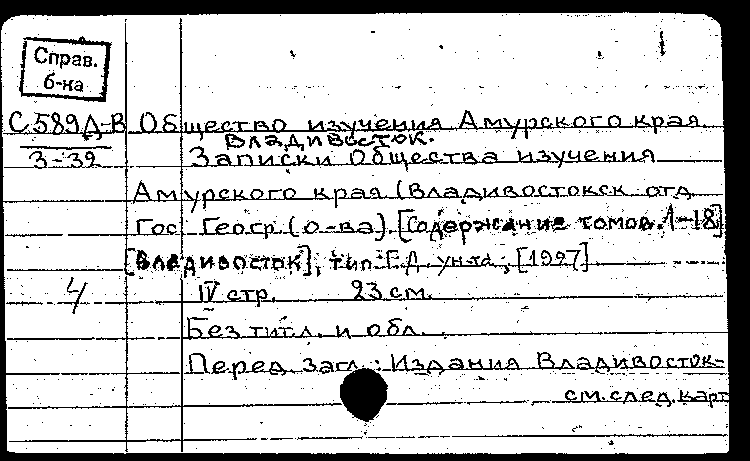 Справ.
б-ка
С589Д-В Общество изучения Амурского края.
Владивосток.
З-32 Записки Общества изучения
Амурского края (Владивостокск. отд.
Гос. Геогр. о-ва). [Содержание томов. 1-18]
[Владивосток], тип. Г.Д. ун-та, [1927].
4 IV стр. 23 см.
Без титл. и обл.
Перед загл.: Издания Владивосток-
см. след. карт